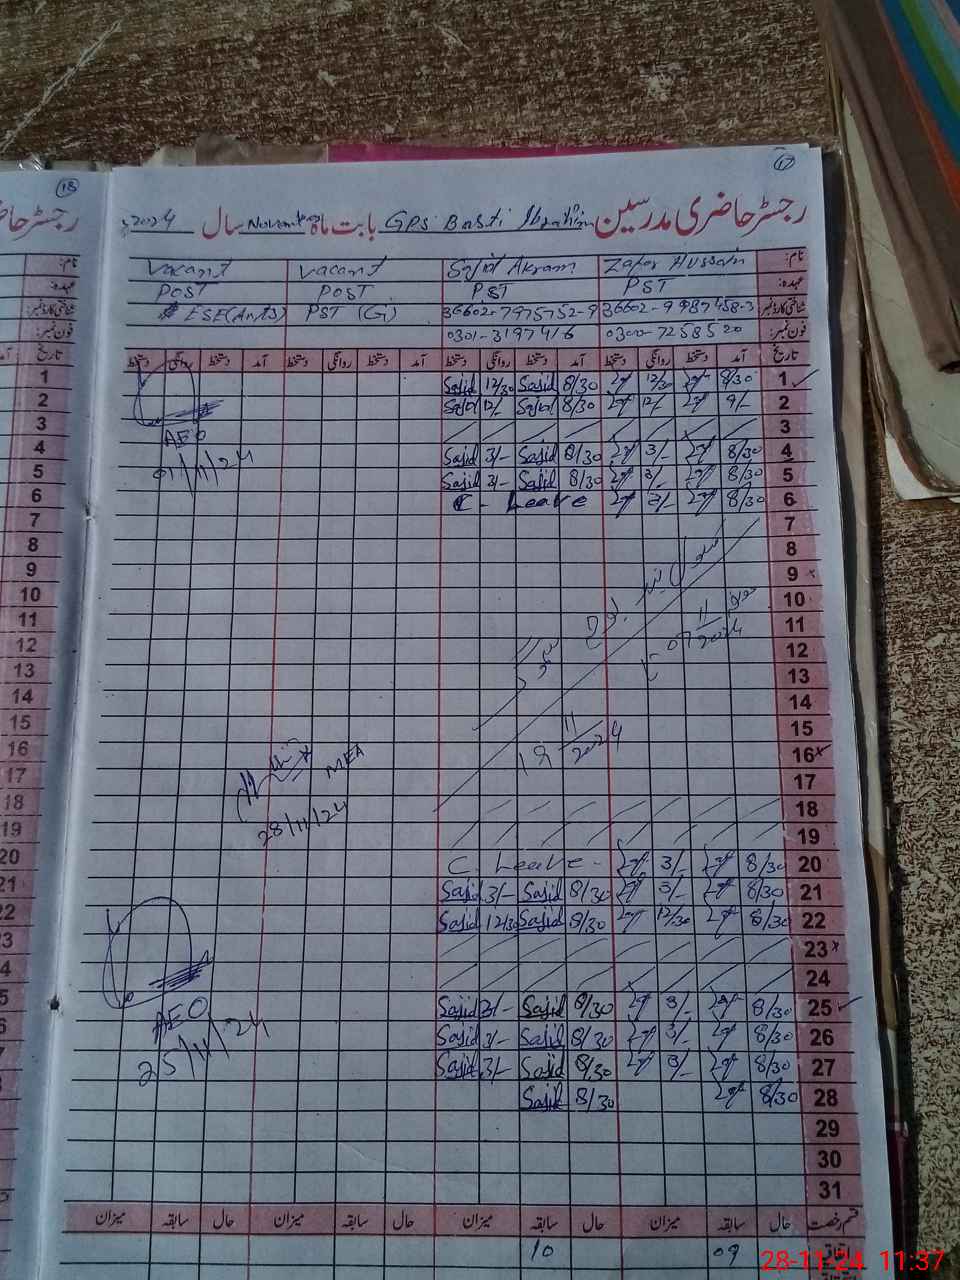 17
رجسٹر حاضری مدرسین GPS Basti Ibrahim بابت ماہ November سال 2024
18
رجسٹر حاض
نام: Zafar Hussain Sajid Akram Vacant Vacant
عہدہ: PST PST POST POST
شناختی کارڈ نمبر: 36602-9987458-3 36602-7975752-9 PST (G) ESE(Arts)
فون نمبر: 0300-7258520 0301-3197416
تاریخ آمد دستخط روانگی دستخط آمد دستخط روانگی دستخط آمد دستخط روانگی دستخط آمد دستخط روانگی دستخط
1 8/30 12/30 8/30 Sajid 12/30 Sajid
2 9/- 12/- 8/30 Sajid 12/- Sajid
3
4 8/30 3/- 8/30 Sajid 3/- Sajid
5 8/30 3/- 8/30 Sajid 3/- Sajid
6 8/30 3/- C- Leave
AEO
01/11/24
7
8
9
10
11
07/11/2024
12
13
14
15
16
19/11/2024
17
MEA
28/11/24
18
19
20 8/30 3/- C Leave -
21 8/30 3/- 8/30 Sajid 3/- Sajid
22 8/30 12/30 8/30 Sajid 12/30 Sajid
23
24
25 8/30 3/- 8/30 Sajid 3/- Sajid
26 8/30 3/- 8/30 Sajid 3/- Sajid
27 8/30 3/- 8/30 Sajid 3/- Sajid
28 8/30 8/30 Sajid
AEO
25/11/24
29
30
31
قسم رخصت حال سابقہ میزان حال سابقہ میزان حال سابقہ میزان حال سابقہ میزان
09 10
28-11-24 11:37